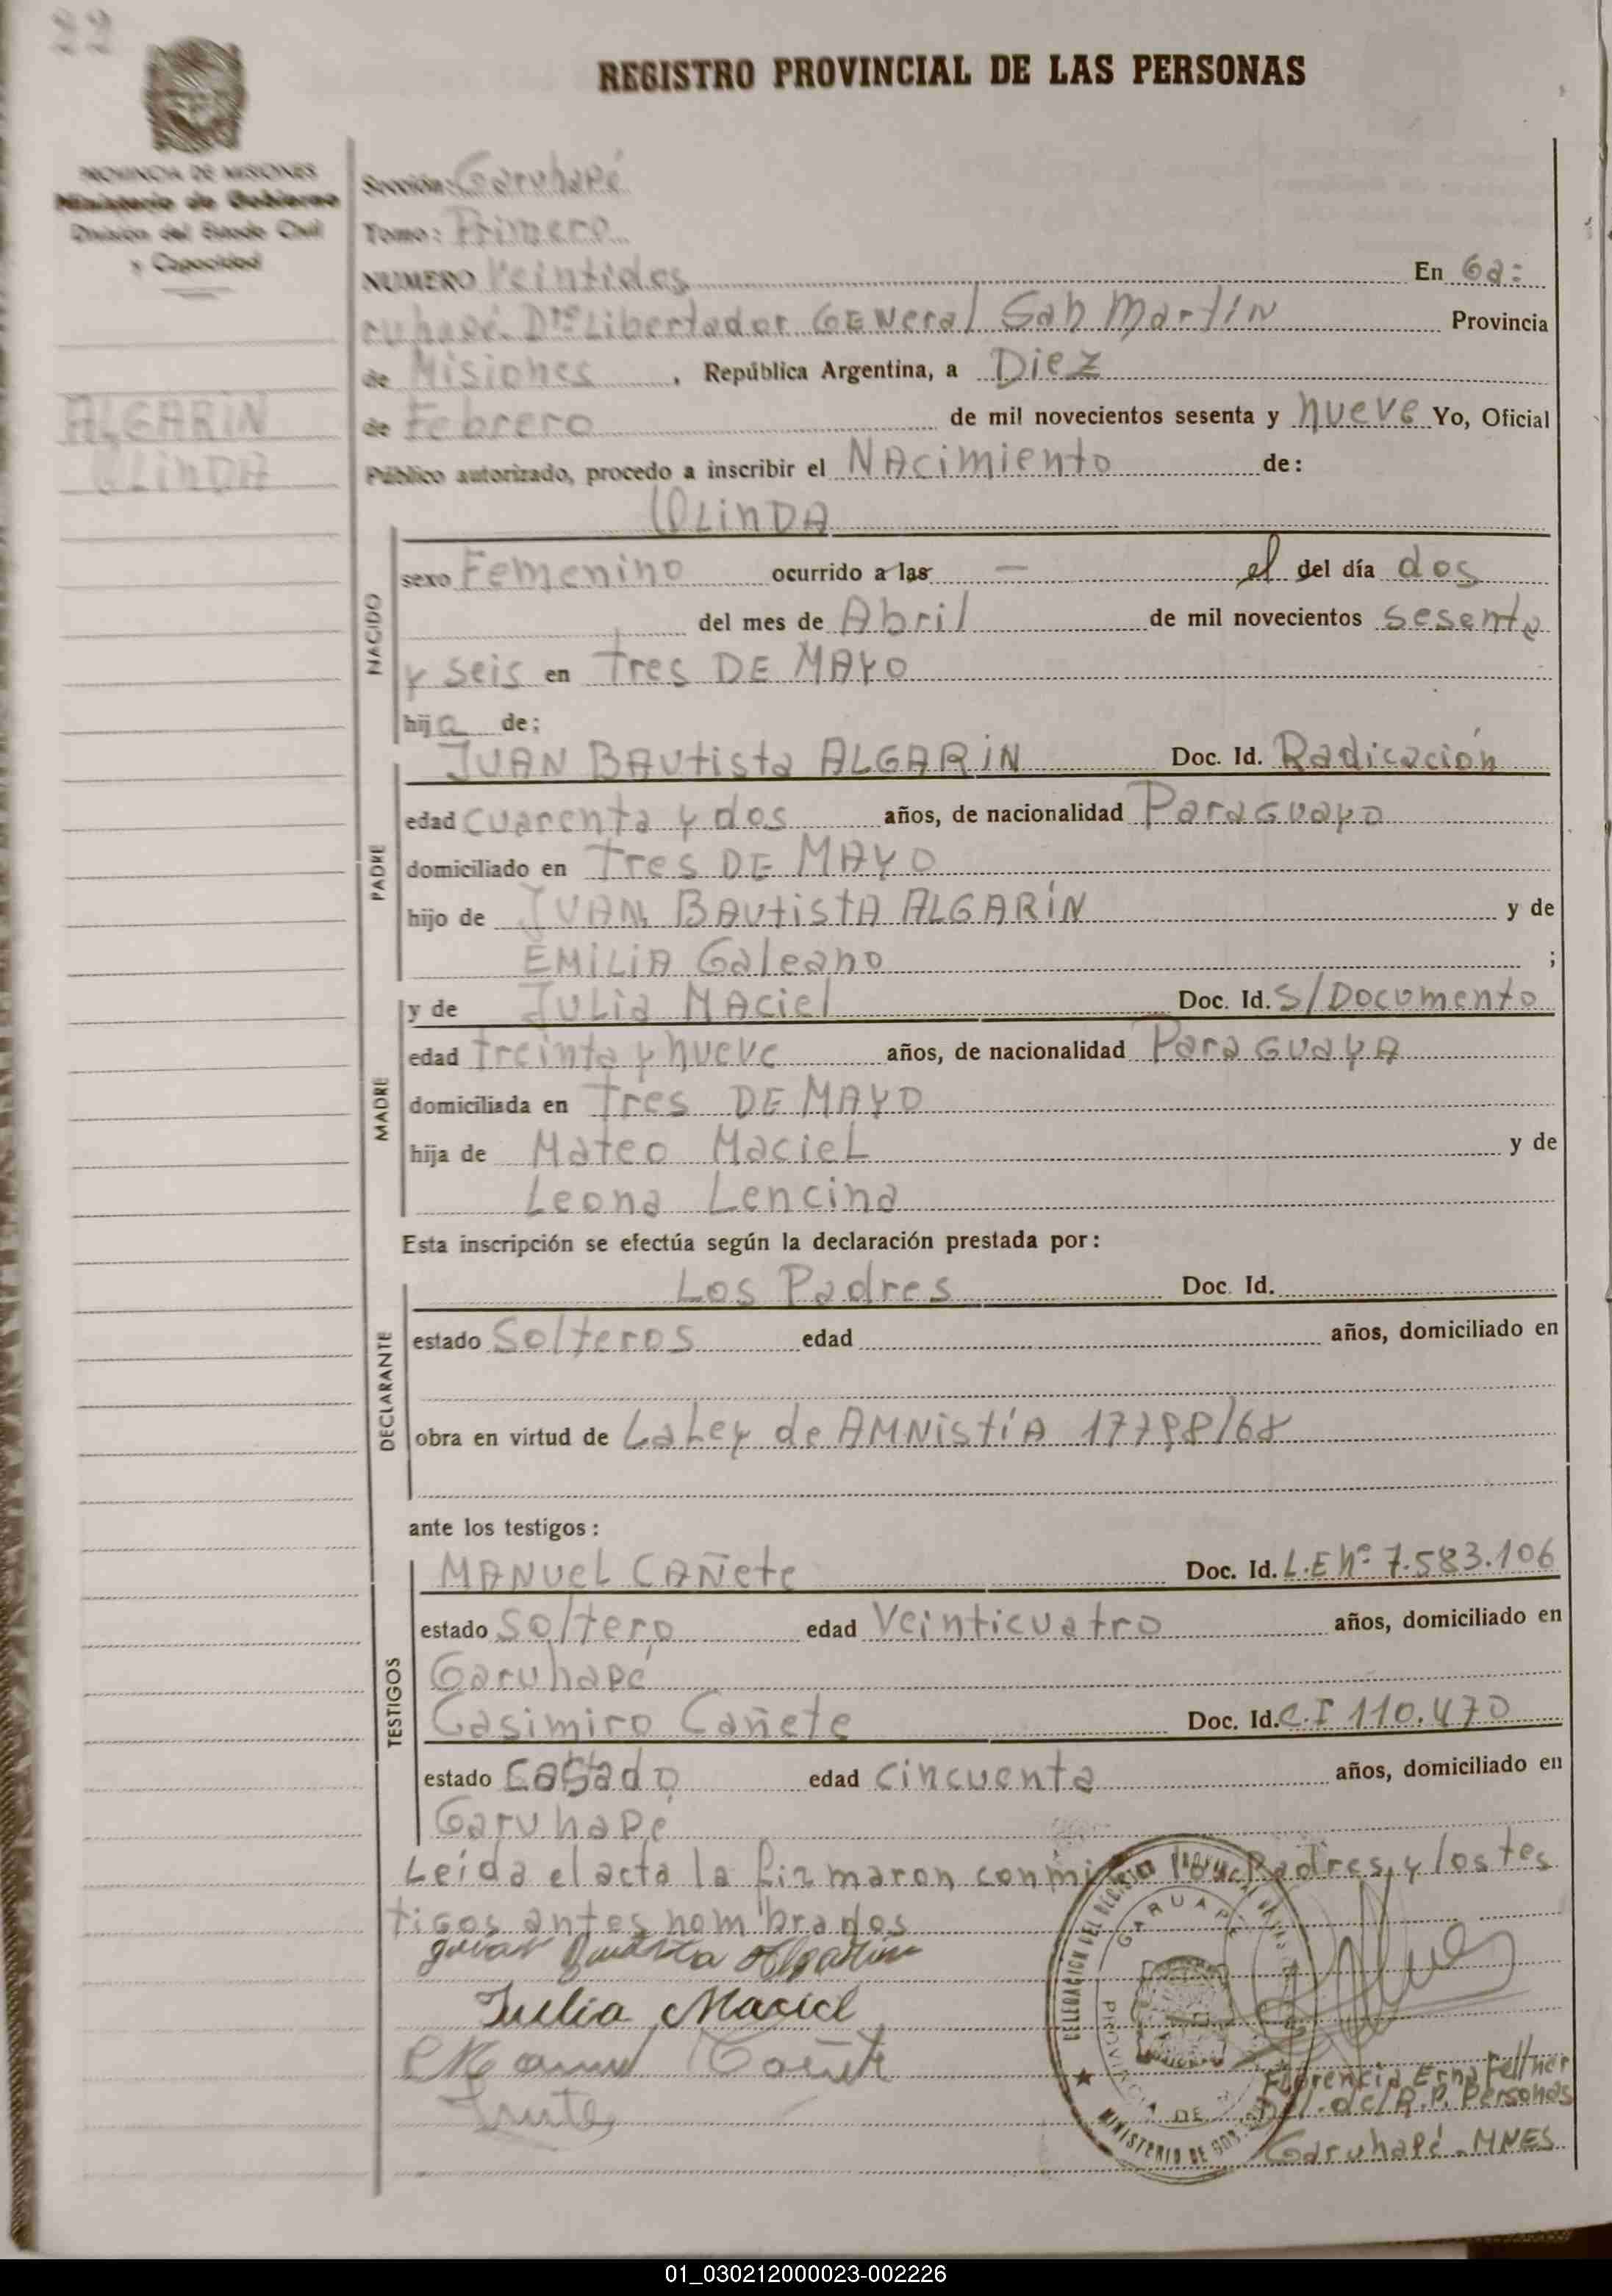 22
REGISTRO PROVINCIAL DE LAS PERSONAS
PROVINCIA DE MISIONES
Ministerio de Gobierno
División del Estado Civil
y Capacidad
ALGARIN
OLINDA
Sección: Garuhapé
Tomo: Primero
NUMERO Veintidos En Ga=
ruhapé. Dto Libertador GENeral San Martín Provincia
de Misiones, República Argentina, a Diez
de Febrero de mil novecientos sesenta y nueve Yo, Oficial
Público autorizado, procedo a inscribir el NAcimiento de:
OLinDA
NACIDO
sexo Femenino ocurrido a las — el del día dos
del mes de Abril de mil novecientos sesenta
y seis en Tres DE MAYO
hija de;
PADRE
JUAN BAUtista ALGARÍN Doc. Id. Radicación
edad cuarenta y dos años, de nacionalidad ParaGuayo
domiciliado en Tres DE MAYO
hijo de JUAN BAUtistA ALGARÍN y de
EMiLiA Galeano ;
MADRE
y de Julia MAciel Doc. Id. S/Documento
edad treinta y nueve años, de nacionalidad ParaGuayA
domiciliada en Tres DE MAYO
hija de Mateo MacieL y de
Leona Lencina
Esta inscripción se efectúa según la declaración prestada por:
DECLARANTE
Los Padres Doc. Id.
estado Solteros edad años, domiciliado en
obra en virtud de La Ley de AMNistíA 17798/68
ante los testigos:
TESTIGOS
MANUeL CAÑete Doc. Id. L.E Nº 7.583.106
estado soltero edad Veinticuatro años, domiciliado en
Garuhapé
Casimiro Cañete Doc. Id. C.I 110.470
estado casado edad cincuenta años, domiciliado en
Garuhapé
Leída el acta la firmaron conmigo Padres, y los tes
tigos antes nombrados
Juan Bautista Algarin
Julia Maciel
Manuel Cañete
DELEGACION DEL REGISTRO
GARUAPE
PROVINCIA DE
MINISTERIO DE GOB.
Florencia Erna Fellner
Del. del R.P. Personas
Garuhapé - MNES
01_030212000023-002226